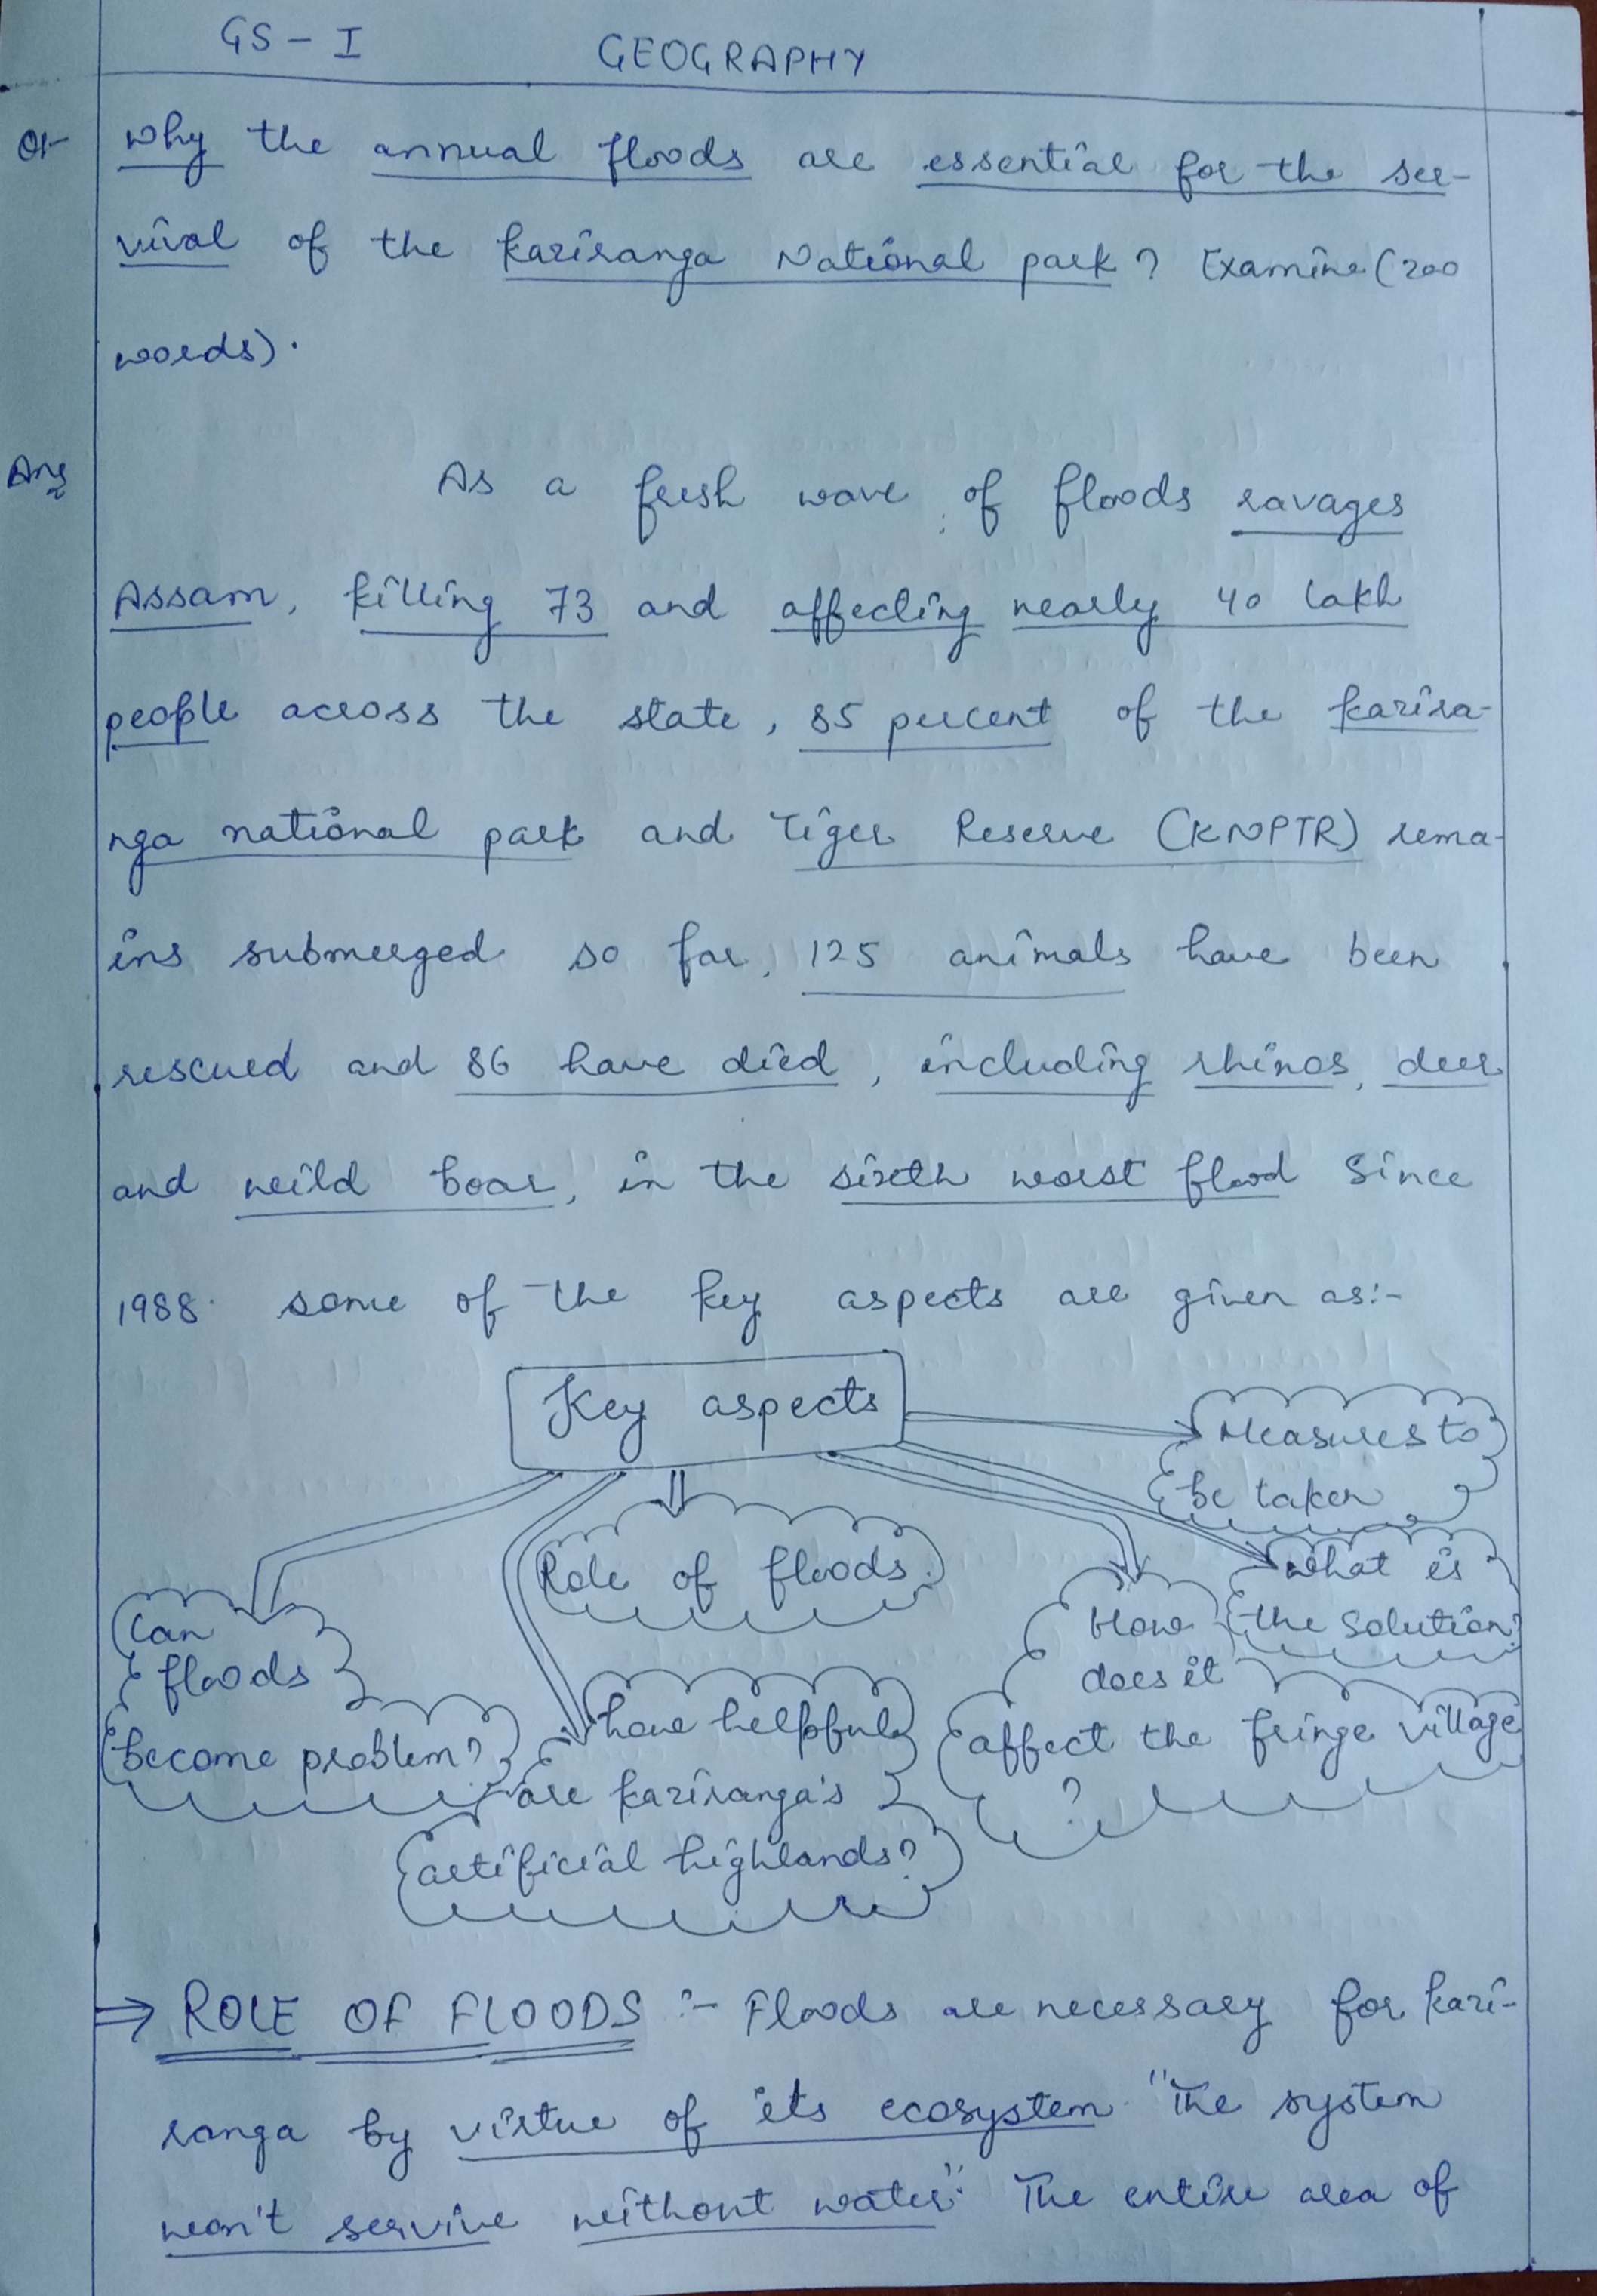 GS - I GEOGRAPHY
Q1- Why the annual floods are essential for the ser-
vival of the kaziranga National park? Examine (200
words).
Ans As a fresh wave of floods ravages
Assam, killing 73 and affecting nearly 40 lakh
people across the state, 85 percent of the kazira-
nga national park and Tiger Reserve (KNPTR) rema-
ins submerged so far, 125 animals have been
rescued and 86 have died, including rhinos, deer
and wild boar, in the sixth worst flood since
1988. some of the key aspects are given as:-
Key aspects
Measures to
be taken
Role of floods.
what is
the solution?
Can
floods
become problem?
How
does it
affect the fringe village
?
have helpful
are kaziranga's
artificial highlands?
⇒ ROLE OF FLOODS :- Floods are necessary for kazi-
ranga by virtue of its ecosystem "The system
won't servive without water." The entire area of